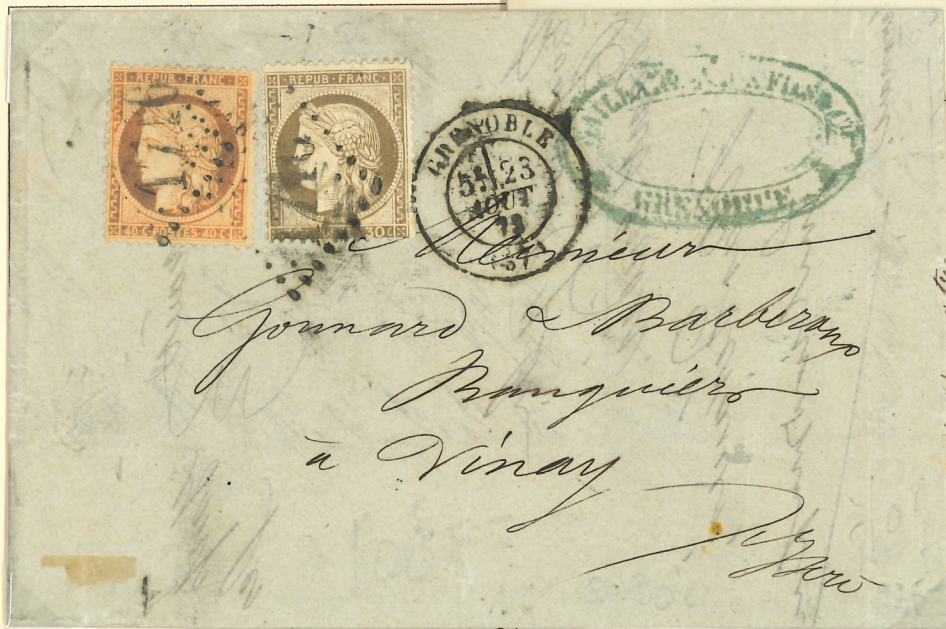 REPUB · FRANC
40 C · POSTES · 40 C
REPUB · FRANC
30 C
GRENOBLE
5E 23
AOUT
73
(37)
GRENOBLE
Messieurs
Gounard & Barberoux
Banquiers
à Vinay
Isère